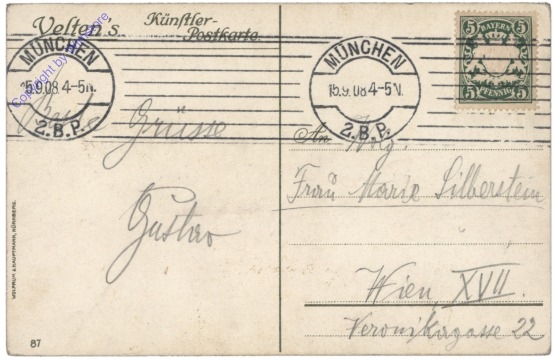 Velten's
Künstler-
Postkarte.
Copyright by
MÜNCHEN
15.9.08 4-5N.
2.B.P.
MÜNCHEN
15.9.08 4-5N.
2.B.P.
BAYERN
5 5
5 5
PFENNIG
Grüsse
Gustav
An
Frau Marie Silberstein
Wien, XVII.
Veronikagasse 22
WOLFRUM & HAUPTMANN, NÜRNBERG.
87